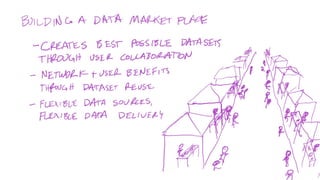 BUILDING A DATA MARKET PLACE
- CREATES BEST POSSIBLE DATASETS
THROUGH USER COLLABORATION
- NETWORK + USER BENEFITS
THROUGH DATASET REUSE
- FLEXIBLE DATA SOURCES,
FLEXIBLE DATA DELIVERY